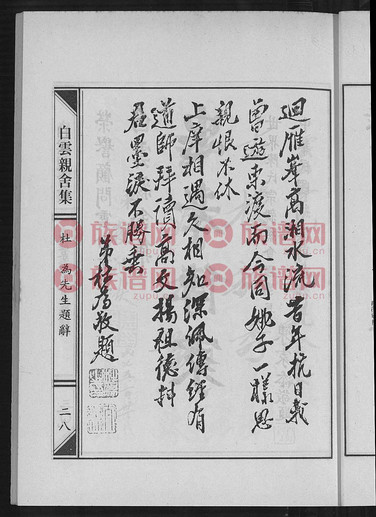 迴雁峯高湘水流昔年抗日載
曾遊東渡而今同姚子一樣思
親恨不休
上庠相遇久相知深佩傳經有
道師拜讀高文揚祖德料
君墨淚不勝垂
弟杜為敬題
白雲親舍集
杜為先生題辭
二八
族谱网
族谱网
族谱网